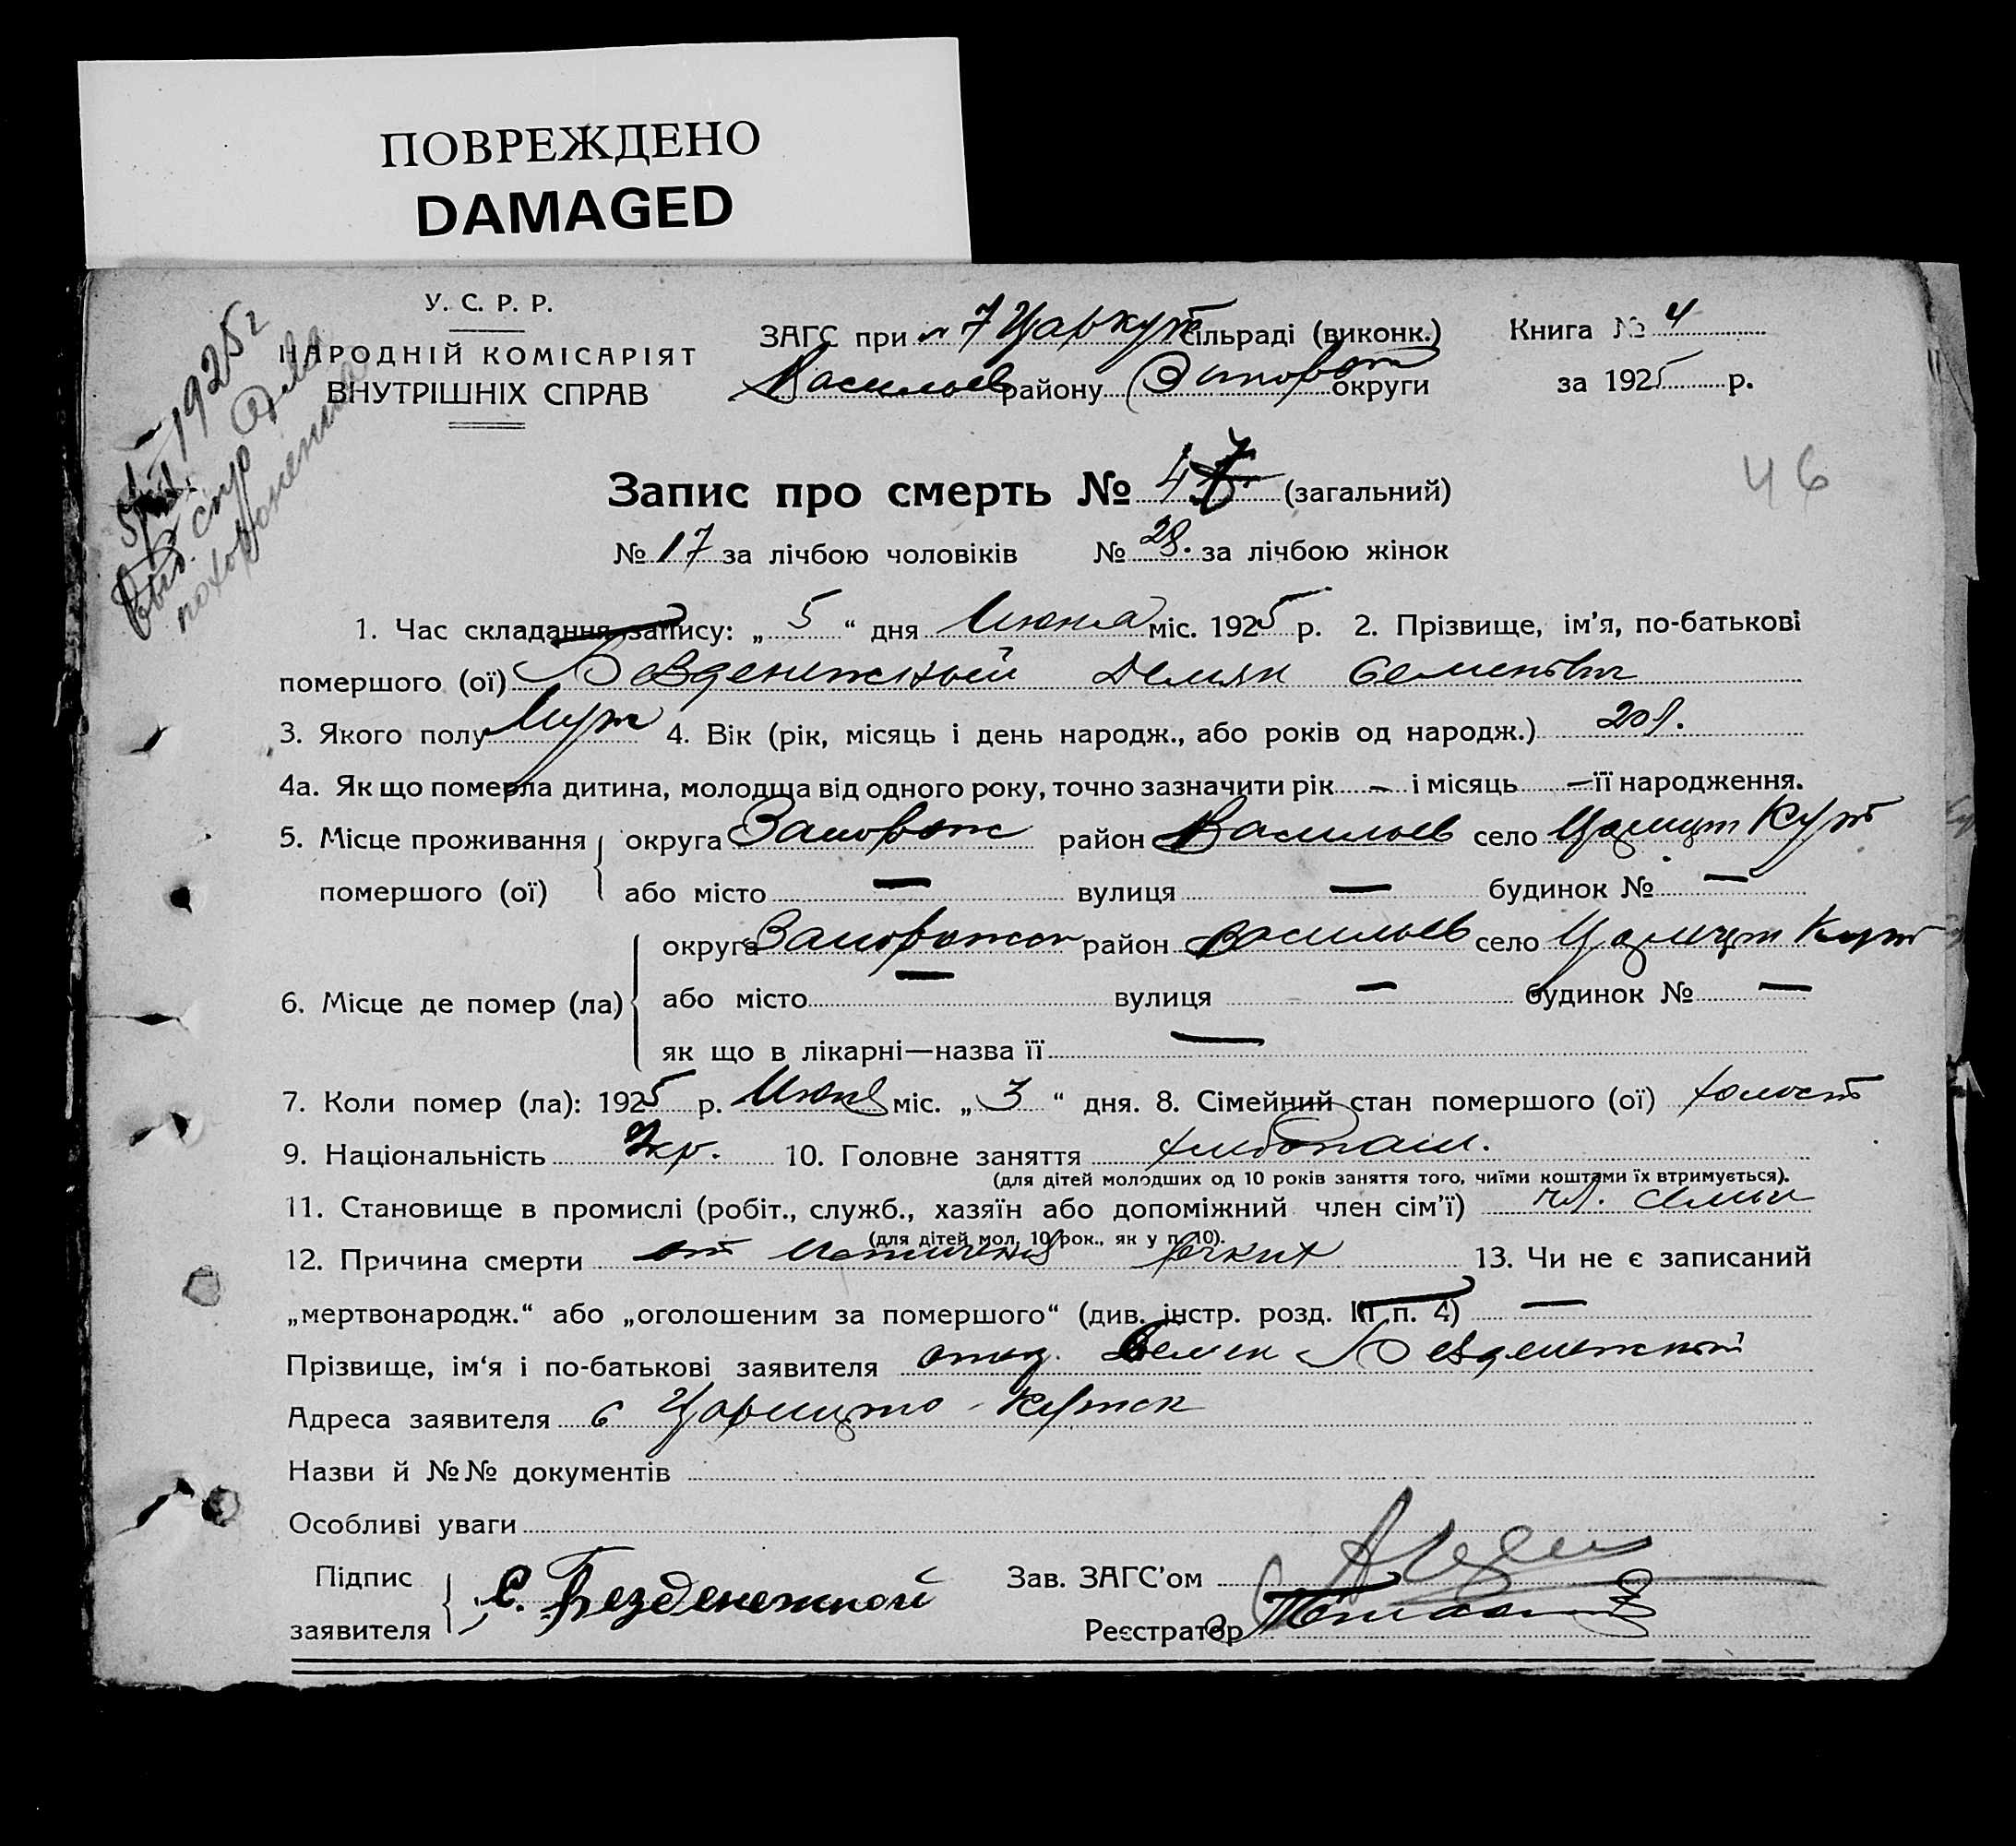 ПОВРЕЖДЕНО
DAMAGED
У. С. Р. Р.
НАРОДНІЙ КОМІСАРІЯТ
ВНУТРІШНІХ СПРАВ
1925 г
для
похоронения
ЗАГС при 7 Царкут сільраді (виконк.) Книга № 4
Васильев району Запорож округи за 1925 р.
46
Запис про смерть № 47 (загальний)
№ 17 за лічбою чоловіків № 28. за лічбою жінок
1. Час складання запису: „ 5 “ дня Июня міс. 1925 р. 2. Прізвище, ім’я, по-батькові
помершого (ої) Безденежный Демян Семенович
3. Якого полу Муж 4. Вік (рік, місяць і день народж., або років од народж.) 20 л.
4а. Як що померла дитина, молодща від одного року, точно зазначити рік – і місяць – її народження.
5. Місце проживання округа Запорож район Васильев село Царицын Кут
помершого (ої) або місто — вулиця — будинок № —
округа Запорожск район Васильев село Царицын Кут
6. Місце де помер (ла) або місто — вулиця — будинок № —
як що в лікарні—назва її —
7. Коли помер (ла): 1925 р. Июня міс. „ 3 “ дня. 8. Сімейний стан помершого (ої) холост
9. Національність Укр. 10. Головне заняття хлебопаш.
(для дітей молодших од 10 років заняття того, чиїми коштами їх втримується).
11. Становище в промислі (робіт., служб., хазяїн або допоміжний член сім’ї) чл. семьи
(для дітей мол. 10 рок., як у п. 10).
12. Причина смерти от 13. Чи не є записаний
„мертвонародж.“ або „оголошеним за помершого“ (див. інстр. розд. III п. 4) —
Прізвище, ім‘я і по-батькові заявителя отец Семен Безденежный
Адреса заявителя с Царицыно-Кутск
Назви й №№ документів
Особливі уваги
Підпис
заявителя С. Безденежной
Зав. ЗАГС’ом
Реєстратор